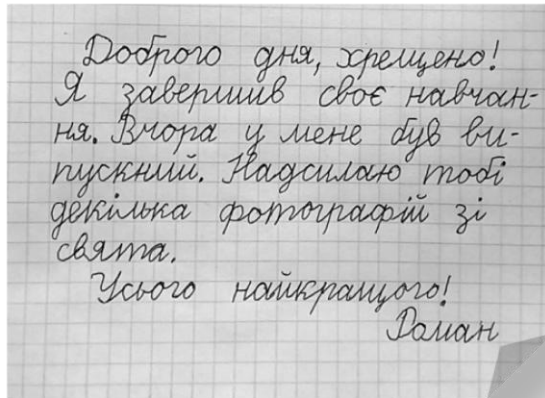 Доброго дня, хрещено!
Я завершив своє навчан-
ня. Вчора у мене був ви-
пускний. Надсилаю тобі
декілька фотографій зі
свята.
Усього найкращого!
Роман